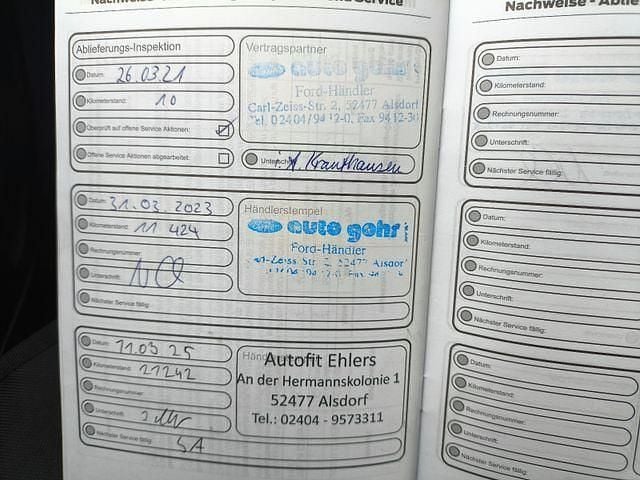 Service
Ablieferungs-Inspektion
Datum: 26.03.21
Kilometerstand: 10
Überprüft auf offene Service Aktionen:
Offene Service Aktionen abgearbeitet:
Vertragspartner
auto gohr
Ford-Händler
Carl-Zeiss-Str. 2, 52477 Alsdorf
Tel. 02404/94 12-0, Fax 94 12-30
Unterschrift: i.A. Krauthausen
Datum: 31.03.2023
Kilometerstand: 11 424
Rechnungsnummer:
Unterschrift:
Nächster Service fällig:
Händlerstempel
auto gohr
Ford-Händler
Datum: 11.03.25
Kilometerstand: 21242
Rechnungsnummer:
Unterschrift:
Nächster Service fällig:
Autofit Ehlers
An der Hermannskolonie 1
52477 Alsdorf
Tel.: 02404 - 9573311
Nachweise -
Datum:
Kilometerstand:
Rechnungsnummer:
Unterschrift:
Nächster Service fällig:
Datum:
Kilometerstand:
Rechnungsnummer:
Unterschrift:
Nächster Service fällig:
Datum:
Kilometerstand:
Rechnungsnummer:
Unterschrift:
Nächster Service fällig: